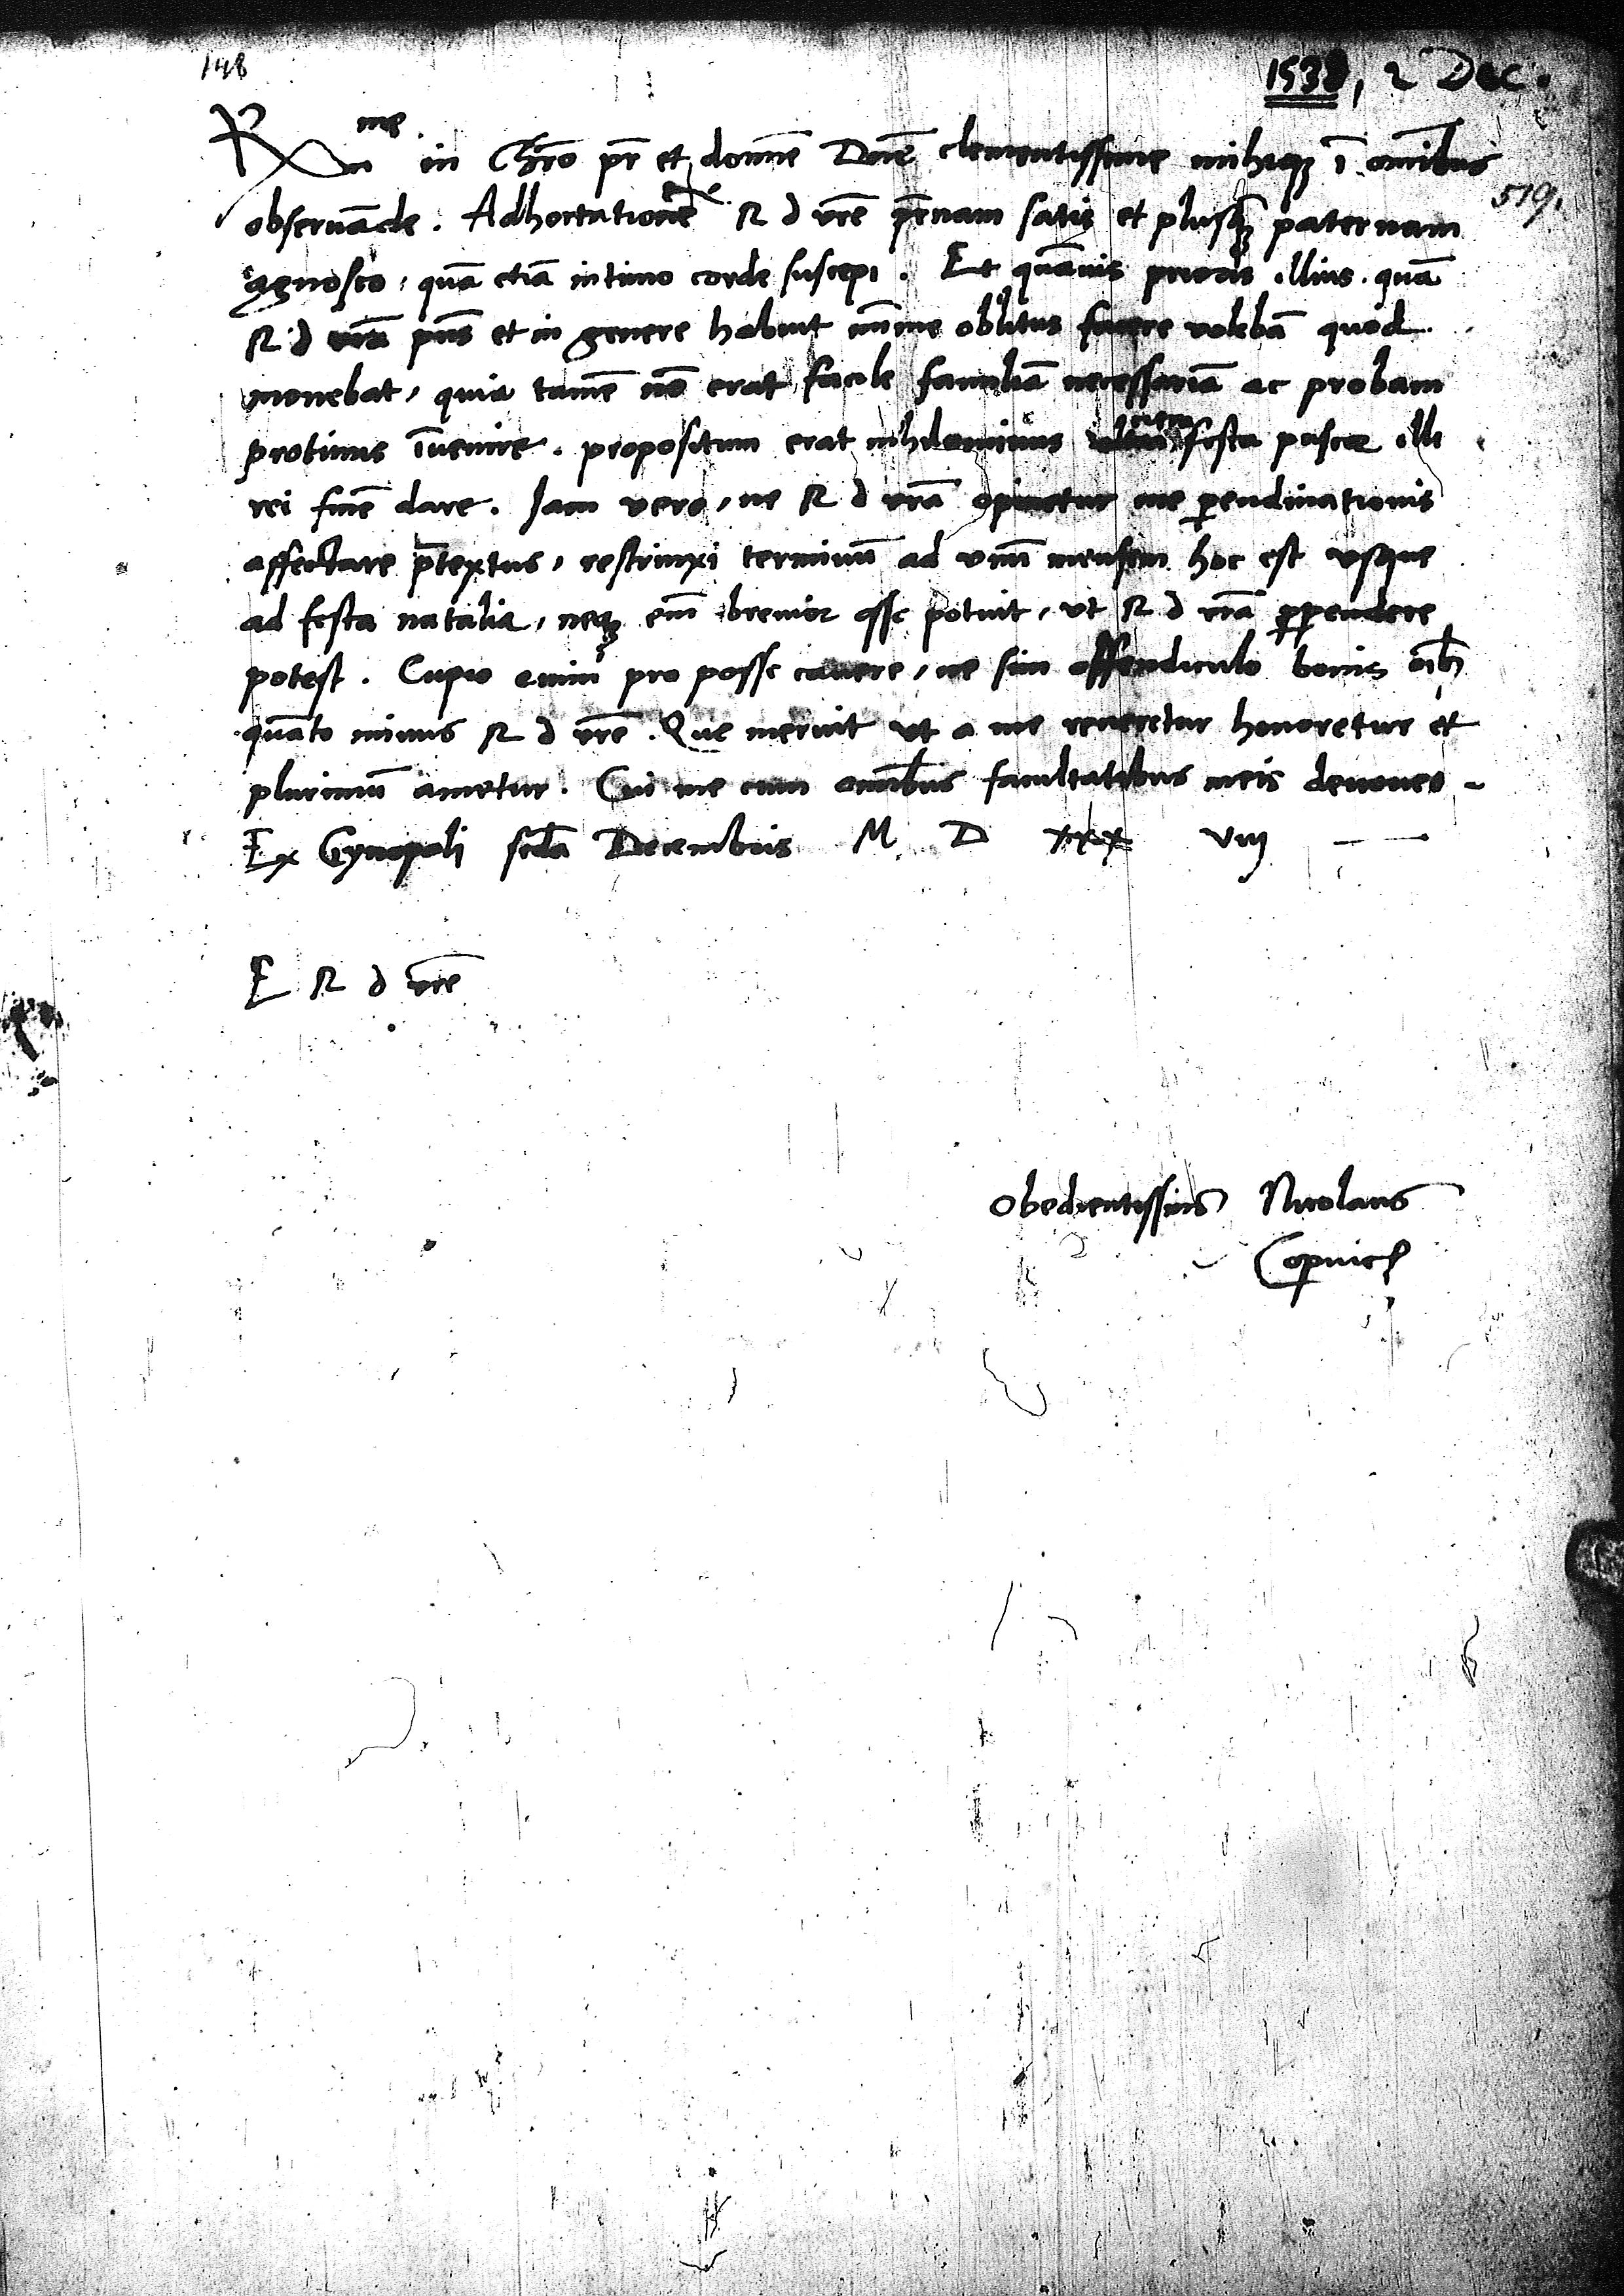 148
1538, 2 Dec.
R me in Chro pr et domne Dne clementissime mihiq; i omnibus
519.
obseruade. Adhortatione R d vre prnam satis et plusq; paternam
agnosco, qua etia intimo corde suscepi. Et quauis prioris illius. qua
R d vra pns et in genere habuit minime oblitus facere voleba quod
monebat, quia tame no erat facile familia necessaria ac probam
protinus iuenire. propositum erat nihilominus citra festa pascae illi
rei fine dare. Iam vero, ne R d vra opinetur me perendinationis
affectare ptextus, restrinxi terminu ad vnu mensem hoc est vsque
ad festa natalia, neq; em breuior esse potuit, vt R d vra perpendere
potest. Cupio enim pro posse cauere, ne sim offendiculo bonis oib
quato minus R d vre. Que meruit vt a me reueretur honoretur et
plurimu ametur. Cui me cum omnibus facultatibus meis deuoueo
Ex Gynopoli scda Decembris M D xxx viij
E R d vre
obedientissimus Nicolaus
Copnic